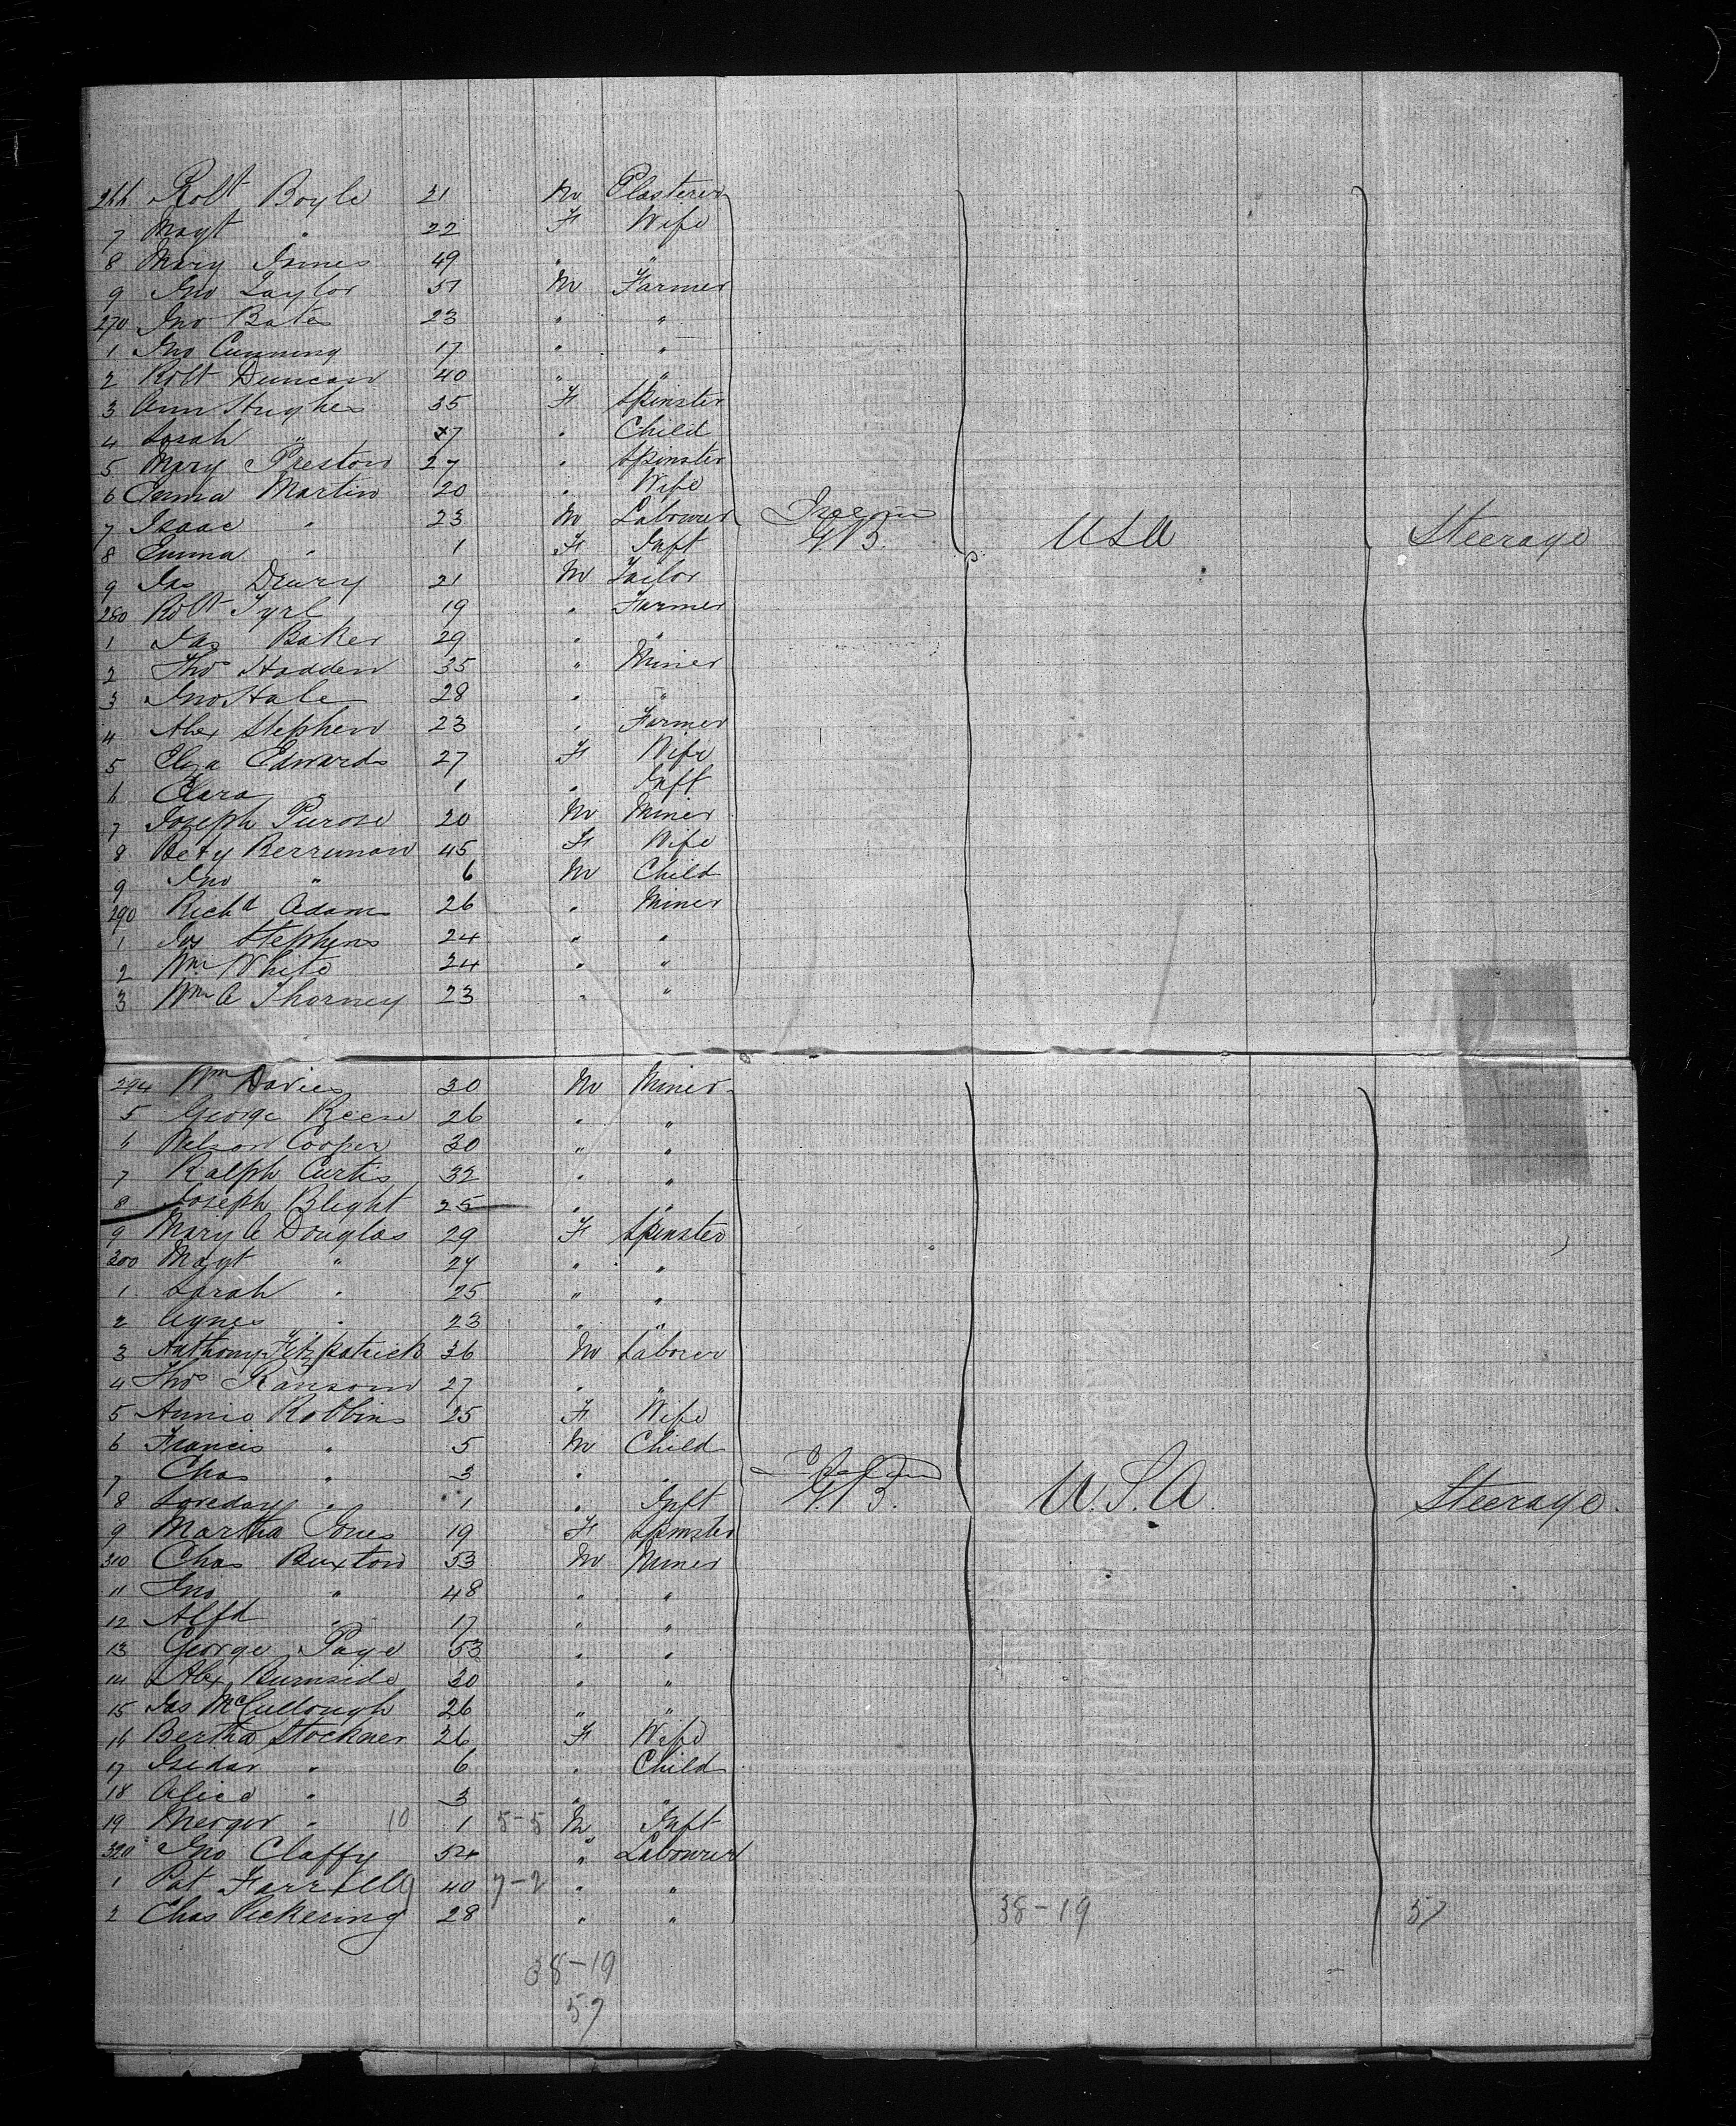 266 Robt Boyle 21 M Plasterer
7 Magt " 22 F Wife
8 Mary Innes 49 " "
9 Jno Taylor 51 M Farmer
270 Jno Bates 23 " "
1 Jno Cunning 17 " "
2 Robt Duncan 40 " "
3 Ann Hughes 35 F Spinster
4 Sarah " 7 " Child
5 Mary Preston 27 " Spinster
6 Emma Martin 20 " Wife
7 Isaac " 23 M Labourer G B. U S A Steerage
8 Emma " 1 F Inft
9 Jas Drury 21 M Tailor
280 Robt 19 " Farmer
1 Jas Baker 29 " "
2 Thos Hadden 35 " Miner
3 Jno Hale 28 " "
4 Alex Stephen 23 " Farmer
5 Eliza Edwards 27 F Wife
6 Clara " 1 " Inft
7 Joseph 20 M Miner
8 Bety Berriman 45 F Wife
9 Jno " 6 M Child
290 Richd Adams 26 " Miner
1 Jas Stephens 24 " "
2 Wm White 24 " "
3 Wm A Thorney 23 " "
294 Wm Davies 30 M Miner
5 George Reese 26 " "
6 Nelson Cooper 30 " "
7 Ralph Curtis 32 " "
8 Joseph Blight 25 " "
9 Mary A Douglas 29 F Spinster
300 Magt " 27 " "
1 Sarah " 25 " "
2 Agnes " 23 " "
3 Anthony Fitzpatrick 36 M Laborer
4 Thos Ransom 27 " "
5 Annie Robbins 25 F Wife
6 Francis " 5 M Child
7 Chas " 3 " "
8 Loveday " 1 " Inft G B. U.S.A. Steerage.
9 Martha Jones 19 F Spinster
310 Chas Buxton 53 M Miner
11 Jno " 48 " "
12 Alfd " 17 " "
13 George Page 53 " "
14 Alex Burnside 30 " "
15 Jas McCullough 26 " "
16 Bertha Stockner 26 F Wife
17 Isedar " 6 " Child
18 Alice " 3 " "
19 " 10 1 5-5 M Inft
320 Jno Claffy 54 " Labourer
1 Pat Farrelly 40 7-2 " "
2 Chas Pickering 28 " " 38-19 57
38-19
57